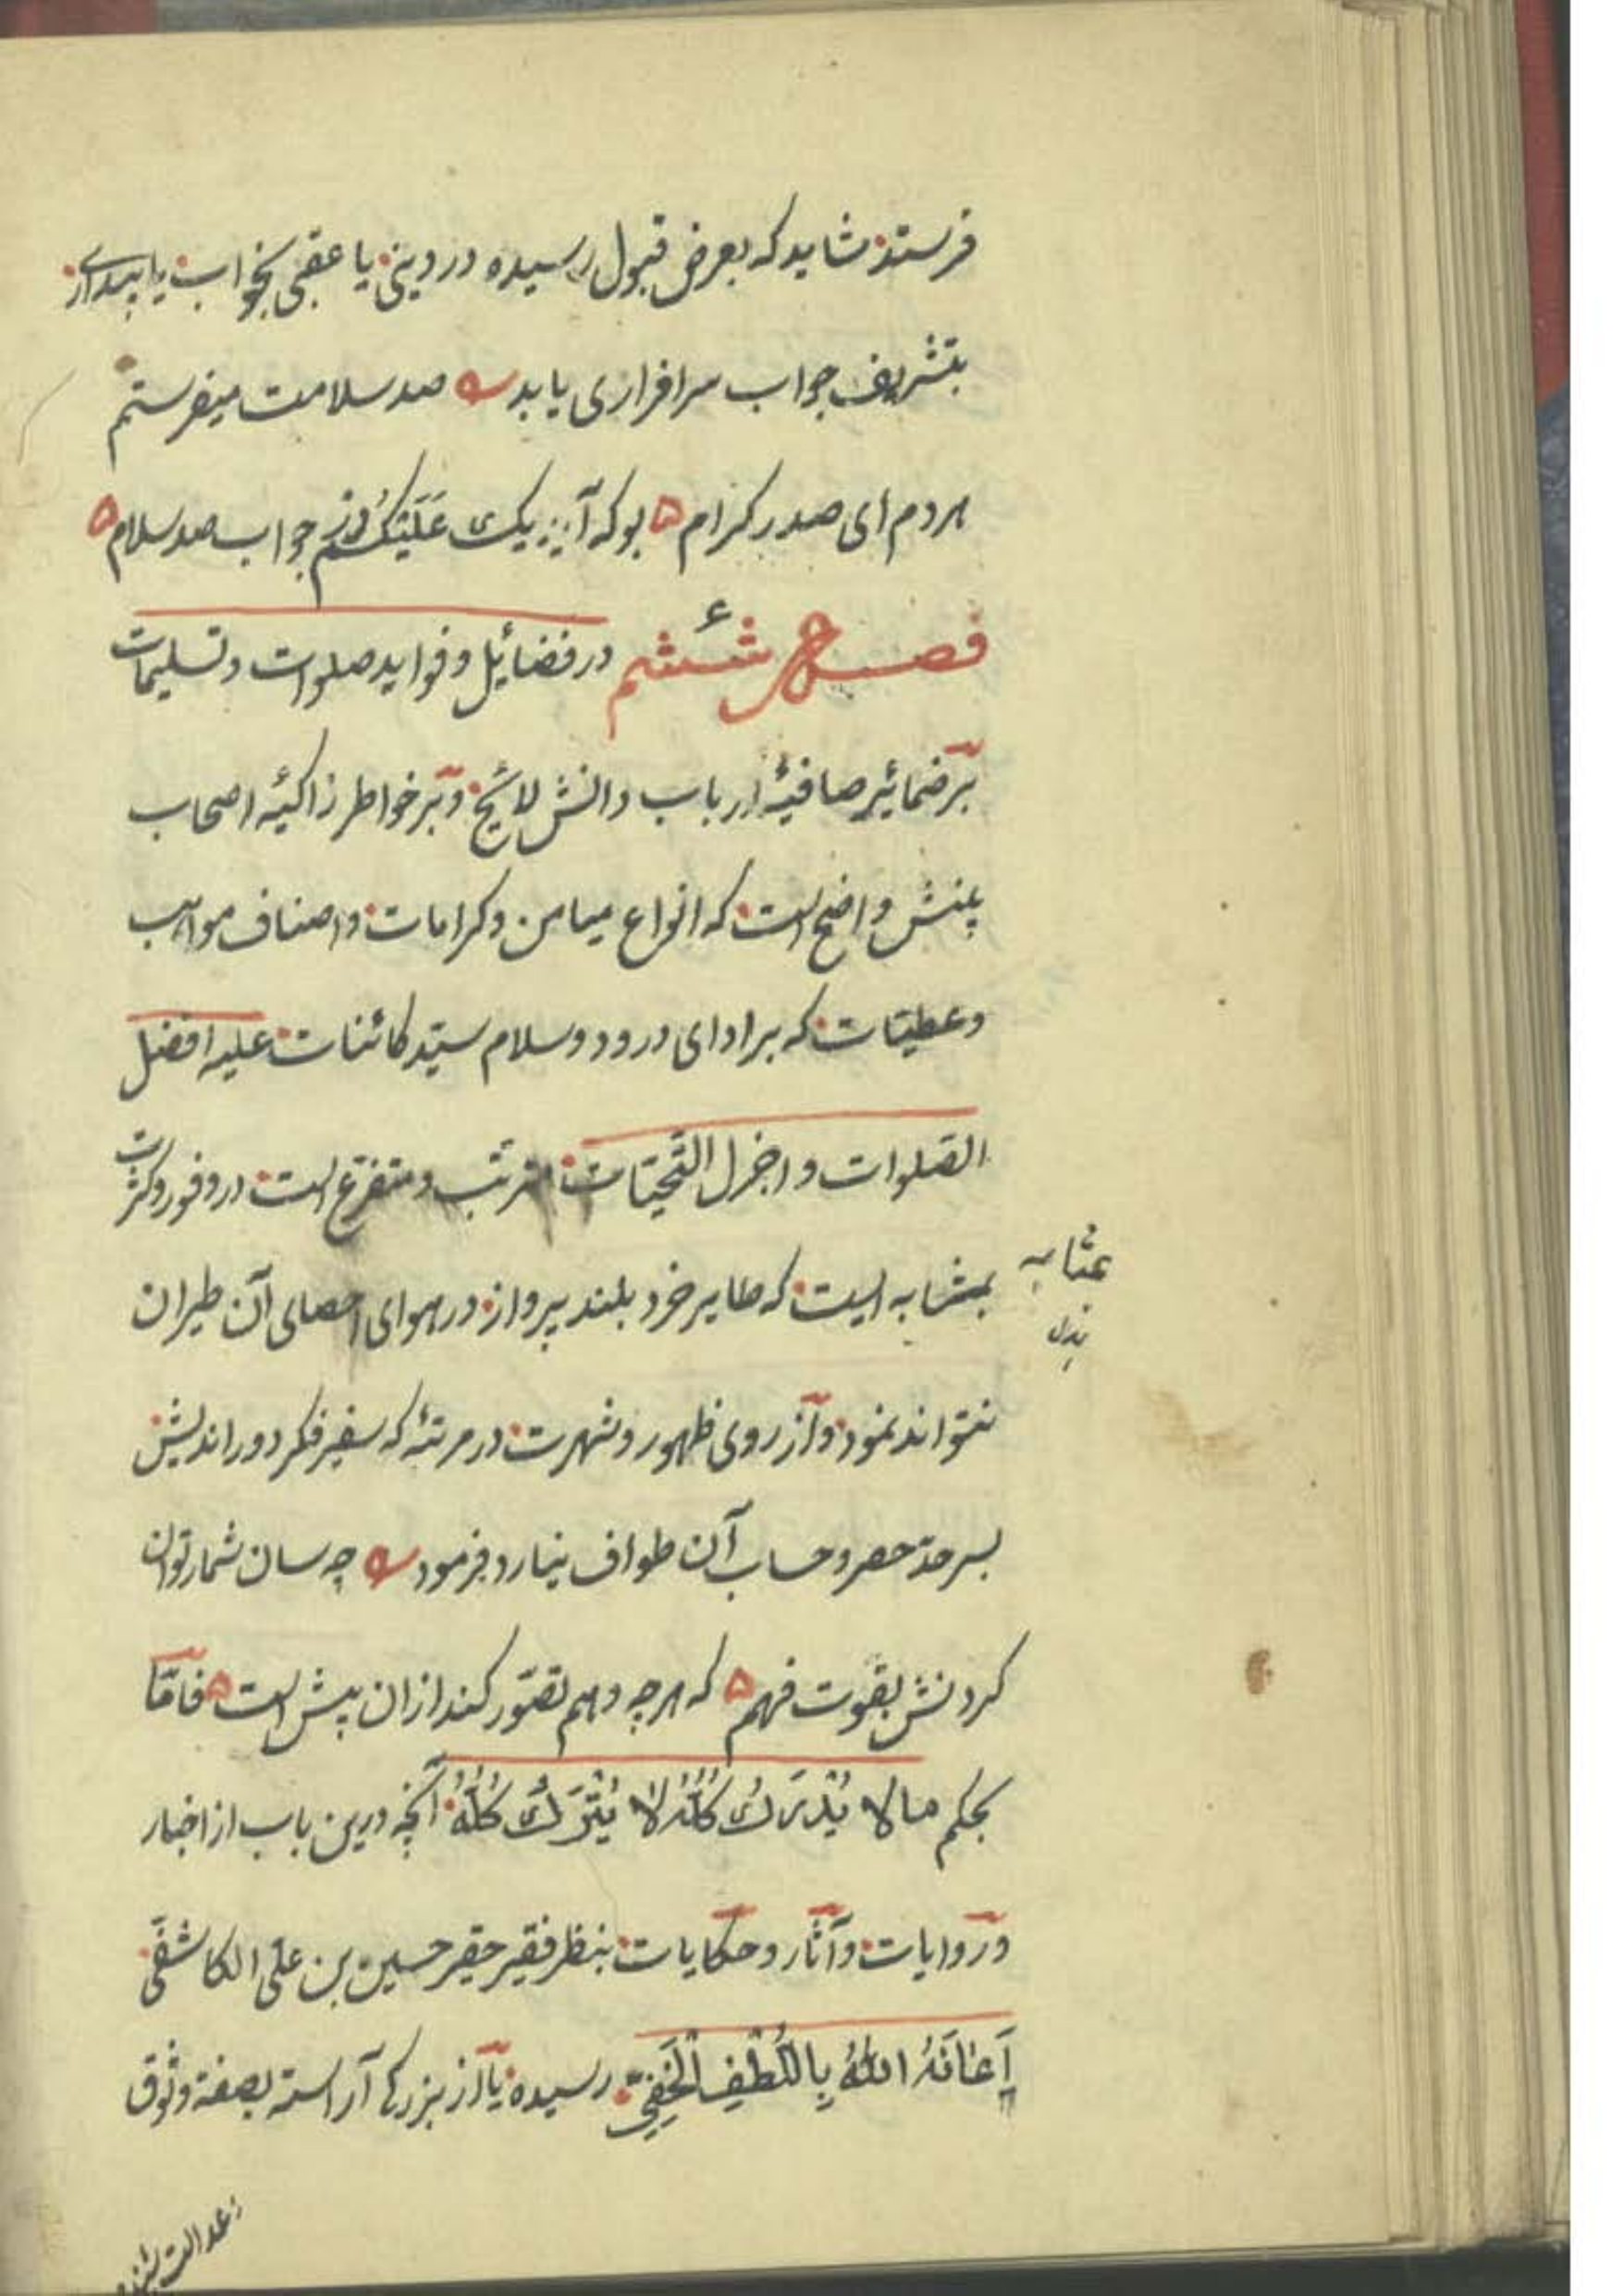 فرستد شاید که بعرض قبول رسیده در دینی یا عقبی بخواب یا بیداری
بتشریف جواب سرافرازی یابد صد سلامت میفرستم
هر دم ای صدر کرام ۵ بو که آید یک عَلَیکُم در جواب صد سلام ۵
فصل ششم در فضائیل و فواید صلوات و تسلیمات
بر ضمائیر صافیهٔ ارباب دانش لائح و بر خواطر زاکیهٔ اصحاب
بینش واضح است که انواع میامن و کرامات و اصناف مواهب
و عطیّات که بر ادای درود و سلام سیّد کائنات علیه افضل
الصّلوات و اجزل التّحیّات مترتّب و متفرّع است در وفور و کثرت
بمثابه ایست که طایر خرد بلند پرواز در هوای احصای آن طیران
بمثابه
بدل
نتواند نمود و از روی ظهور و شهرت در مرتبهٔ که سفیر فکر دور اندیش
بسر حدّ حصر و حساب آن طواف نیارد فرمود چه سان شمار توان
کردنش بقوت فهم ۵ که هر چه وهم تصوّر کند از ان بیش است ۵ فامّا
بحکم مالا یُدْرَكُ کُلُّهُ لا یُتْرَكُ کُلُّهُ آنچه درین باب از اخبار
و روایات و آثار و حکایات بنظر فقیر حقیر حسین بن علی الکاشفی
اَعَانَهُ اللهُ بِاللُّطْفِ الْخَفِیِّ رسیده یا از بزرگی آراسته بصفة وثوق